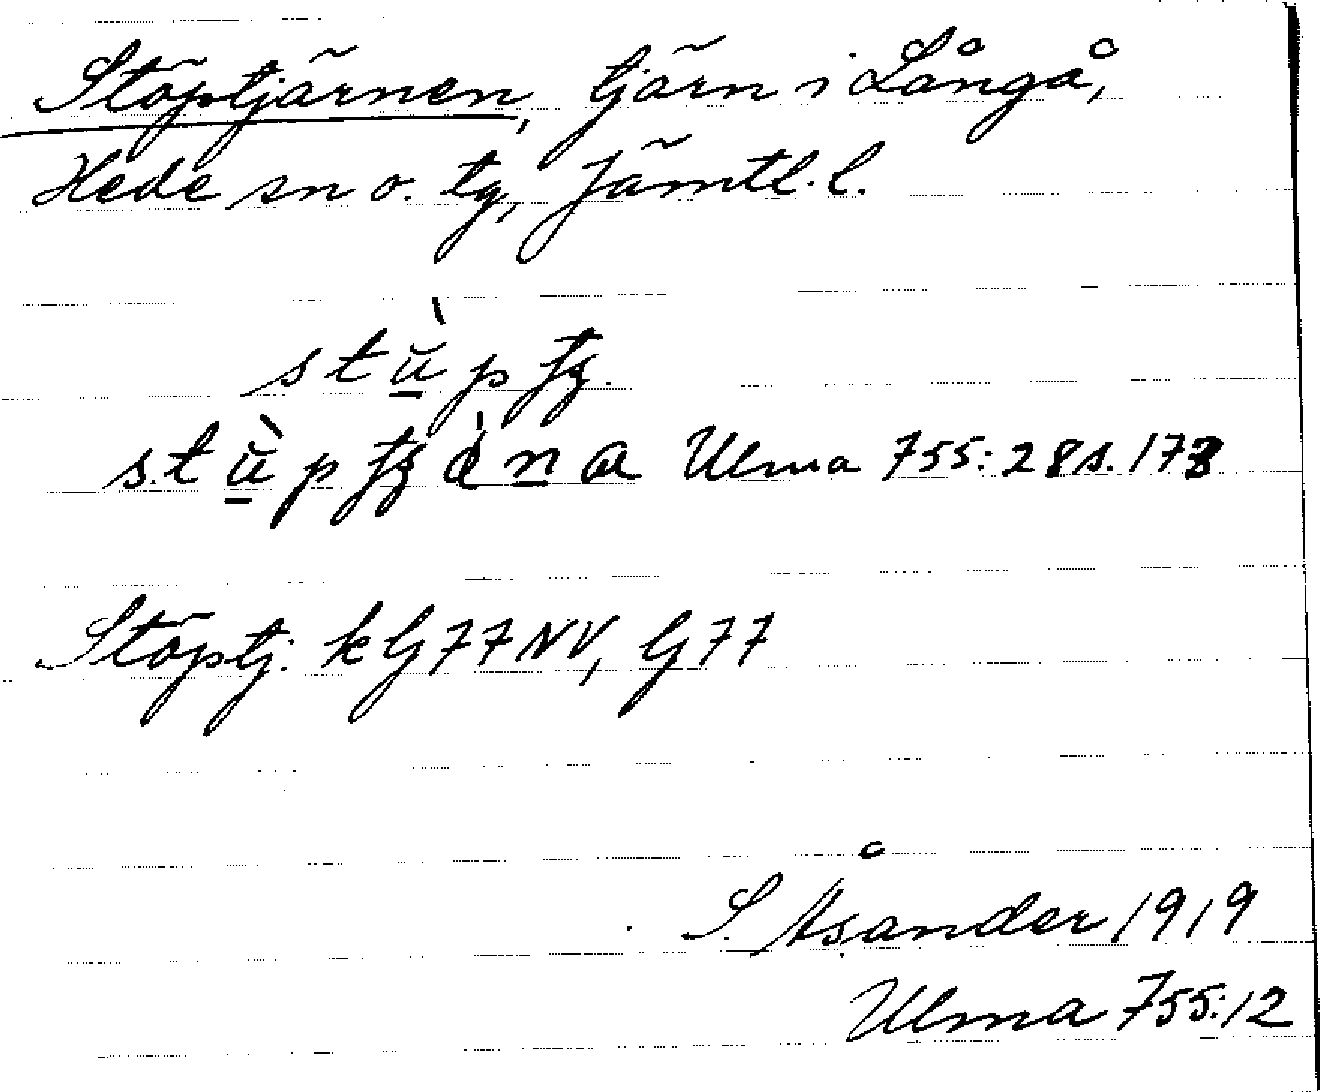 Stöptjärnen, tjärn i Långå,
Hede sn o. tg, Jämtl. l.
Ulma 755: 28 s. 173
Stöptj. k Gj 77 NV, Gj 77
S. Åsander 1919
Ulma 755:12